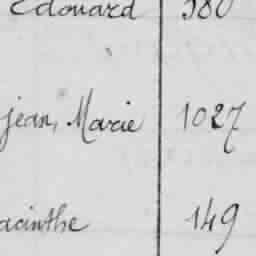 Edouard 380
jean, Marie 1027
acinthe 149